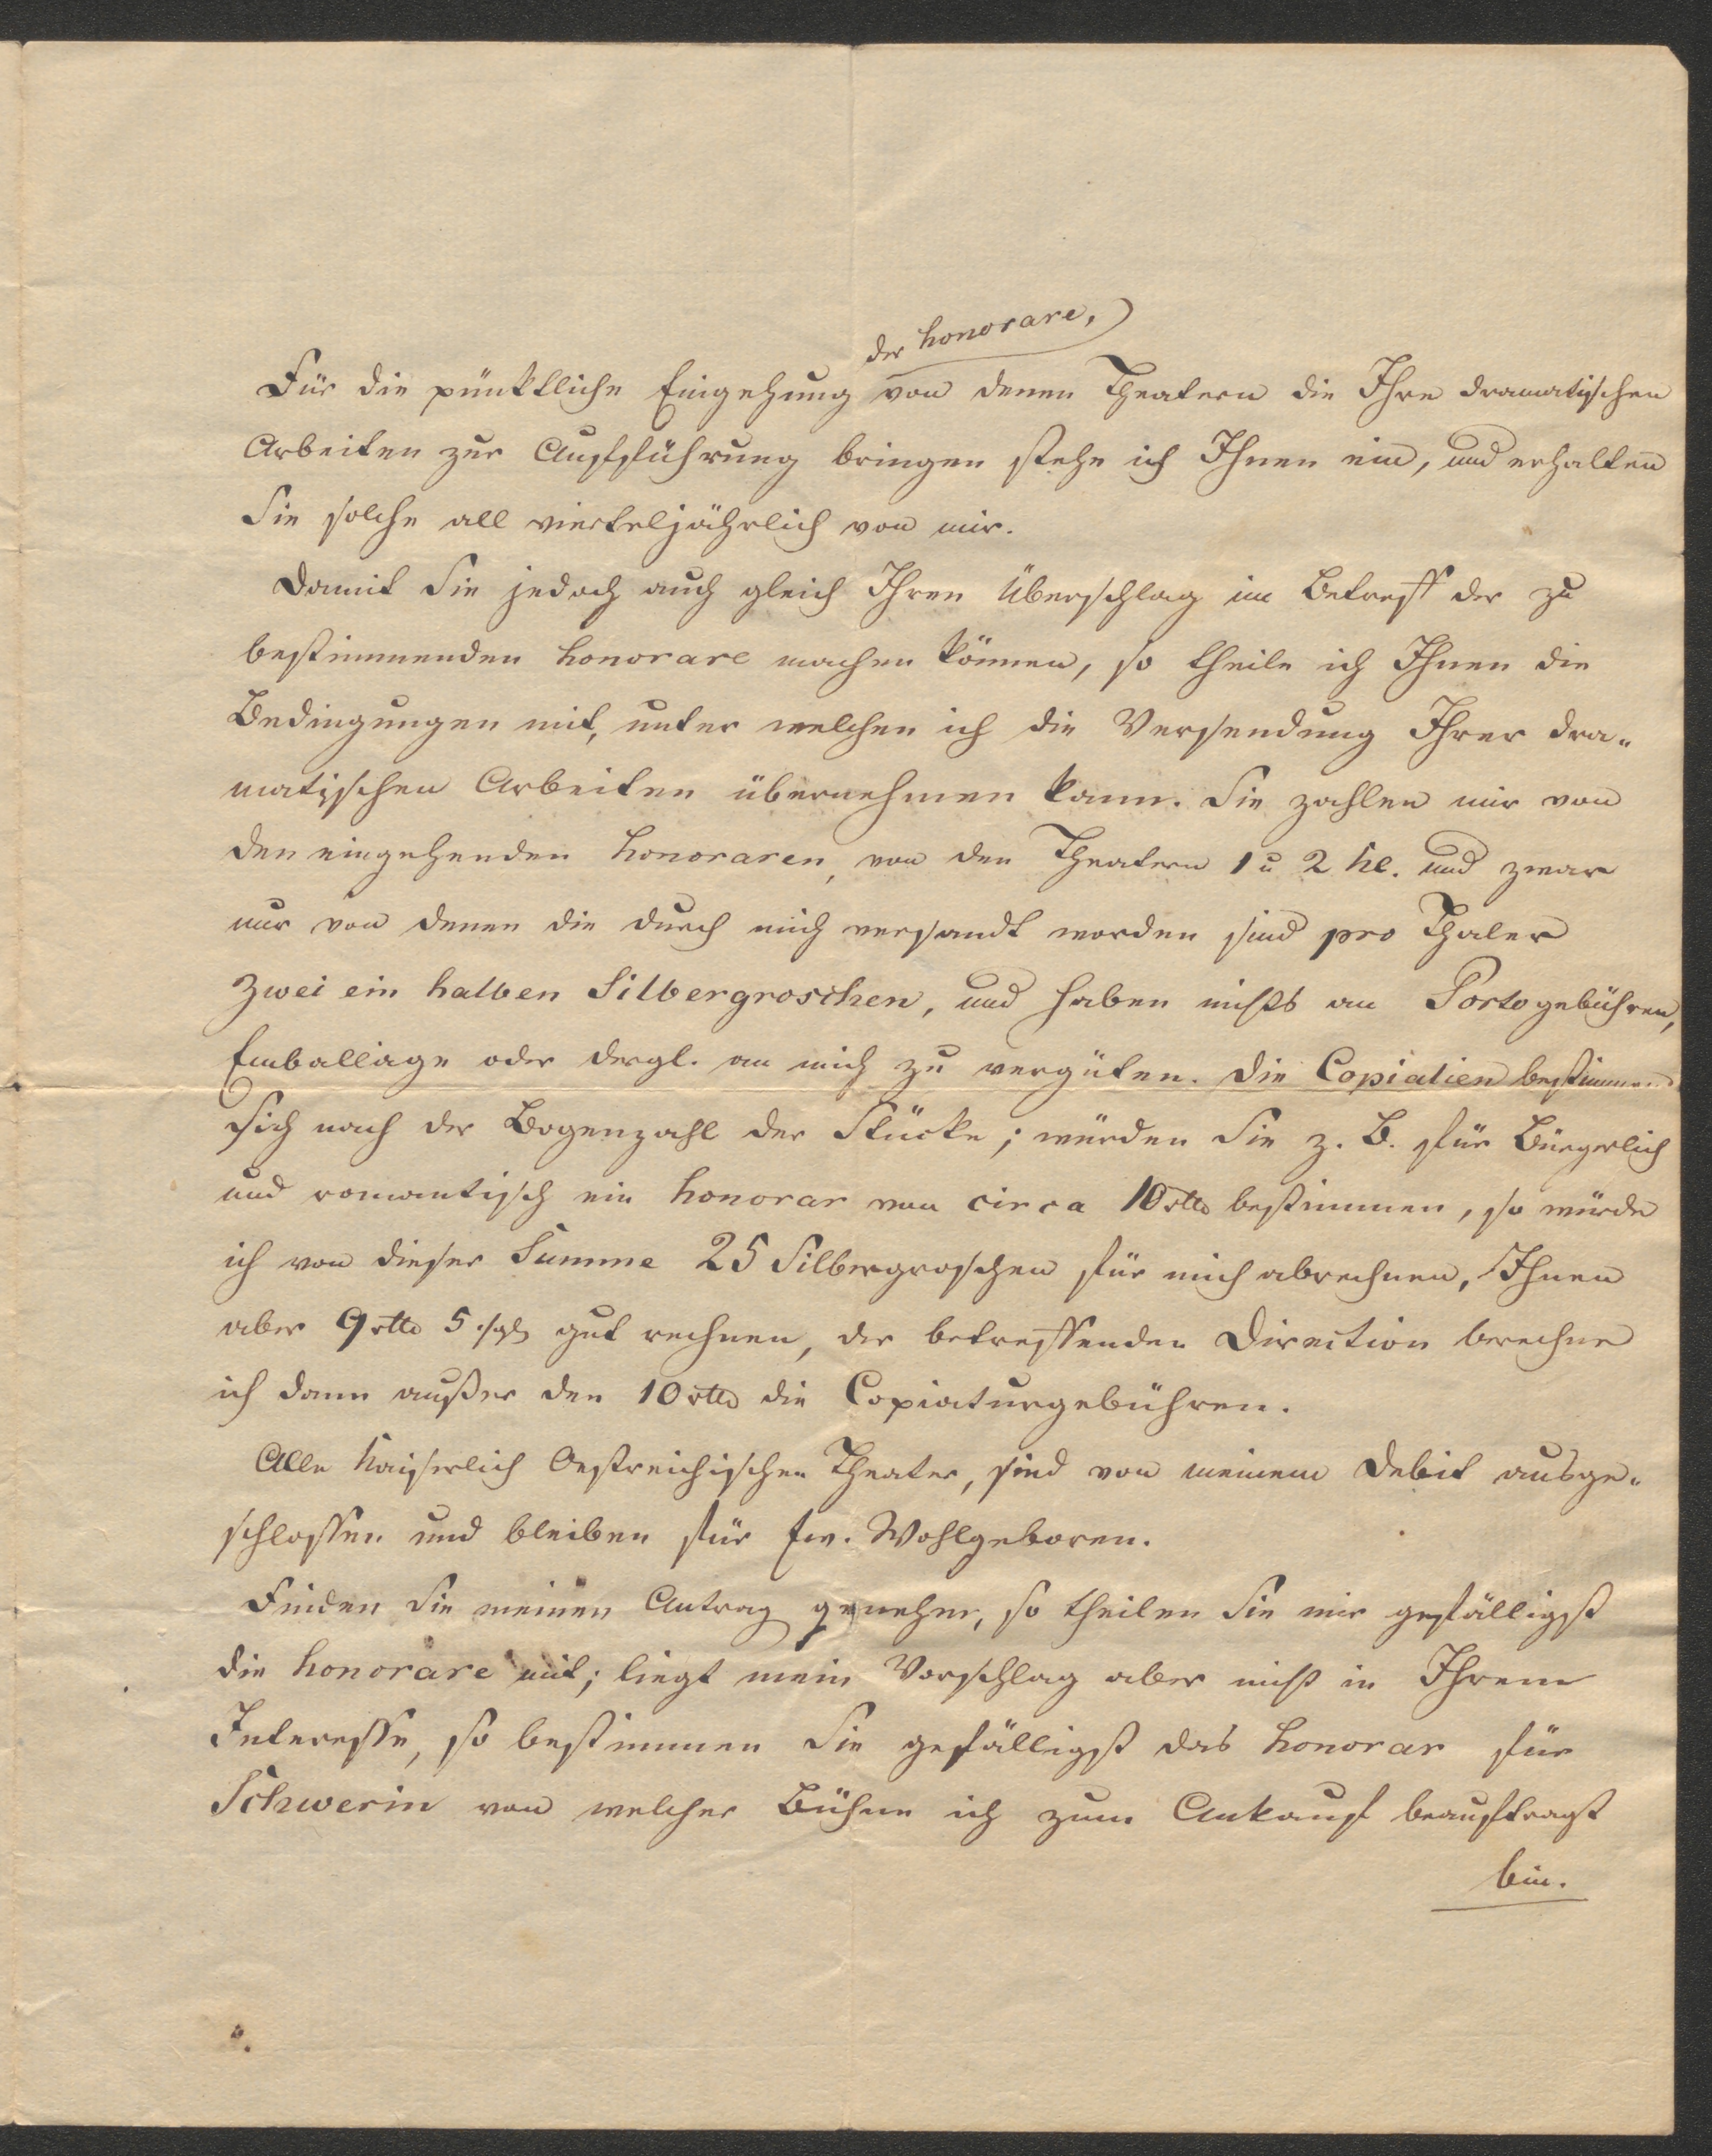 der Honorare,
Für die pünktliche Eingehung von denen Theatern die Ihre dramatischen
Arbeiten zur Aufführung bringen stehe ich Ihnen ein, und erhalten
Sie solche all vierteljährlich von mir.
Damit Sie jedoch auch gleich Ihren Überschlag im Betreff der zu
bestimmenden Honorare machen können, so theile ich Ihnen die
Bedingungen mit, unter welchen ich die Versendung Ihrer dra-
matischen Arbeiten übernehmen kann. Sie zahlen mir von
den eingehenden Honoraren, von den Theatern 1 u 2 Kl. und zwar
nur von denen die durch mich versandt worden sind pro Thaler
Zwei ein halben Silbergroschen, und haben nichts an Portogebühren,
Emballage oder dergl. an mich zu vergüten. Die Copialien bestimmen
sich nach der Bogenzahl der Stücke; würden Sie z. B. für Bürgerlich
und romantisch ein Honorar von circa 10 rtlr bestimmen, so würde
ich von dieser Summe 25 Silbergroschen für mich abrechnen, Ihnen
aber 9 rtlr 5 sgr gut rechnen, der betreffenden Direction berechne
ich dann außer den 10 rtlr die Copiaturgebühren.
Alle Kaiserlich Oestreichischen Theater, sind von meinem Debit ausge-
schlossen und bleiben für Ew. Wohlgeboren.
Finden Sie meinen Antrag genehm, so theilen Sie mir gefälligst
die Honorare mit; liegt mein Vorschlag aber nicht in Ihrem
Interesse, so bestimmen Sie gefälligst das Honorar für
Schwerin von welcher Bühne ich zum Ankauf beauftragt
bin.